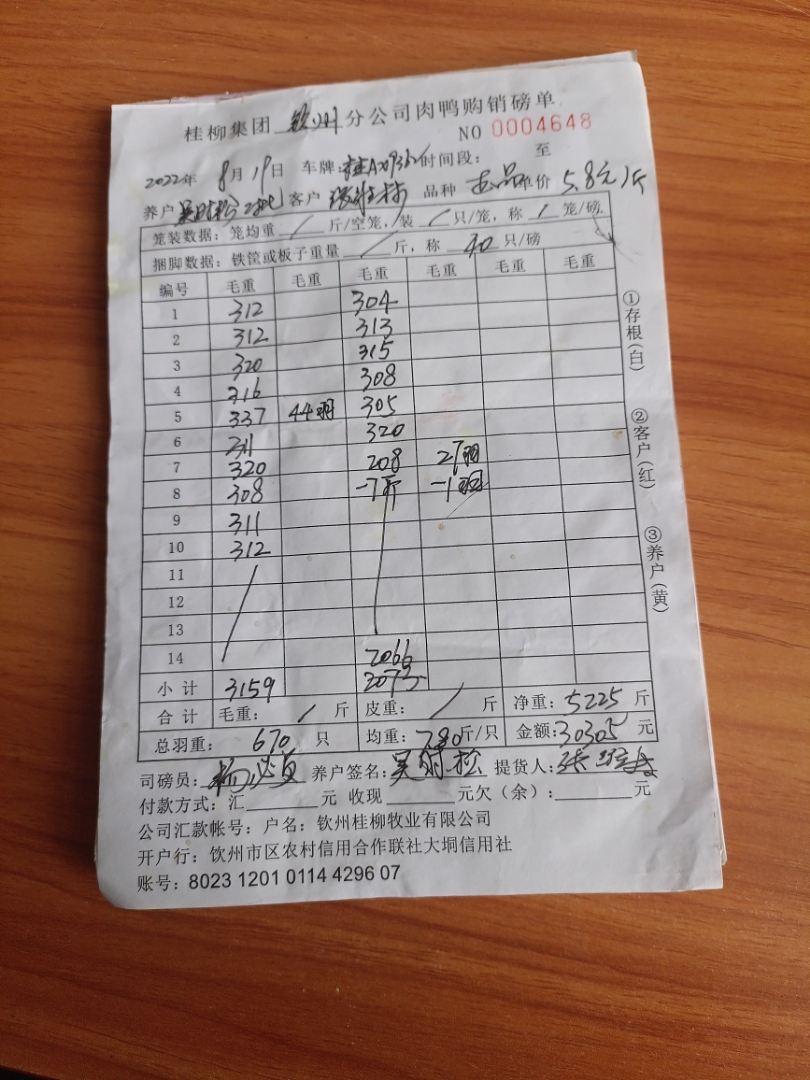 桂柳集团 钦州 分公司肉鸭购销磅单
NO 0004648
2022年 8月19日 车牌: 时间段: 至
养户 客户 品种 单价 5.8元/斤
笼装数据: 笼均重 / 斤/空笼, 装 / 只/笼, 称 / 笼/磅
捆脚数据: 铁筐或板子重量 / 斤, 称 40 只/磅
编号 毛重 毛重 毛重 毛重 毛重 毛重
1 312 304
2 312 313
3 320 315
4 316 308
5 337 44羽 305
6 311 320
7 320 208 27羽
8 308 -7斤 -1羽
9 311
10 312
11
12
13
14 2066
小计 3159 2073
合计 毛重: / 斤 皮重: / 斤 净重: 5225 斤
总羽重: 670 只 均重: 7.80 斤/只 金额: 30305 元
司磅员: 养户签名: 提货人:
付款方式: 汇______元 收现______元欠(余):______元
公司汇款帐号: 户名: 钦州桂柳牧业有限公司
开户行: 钦州市区农村信用合作联社大垌信用社
账号: 8023 1201 0114 4296 07
①存根(白)
②客户(红)
③养户(黄)